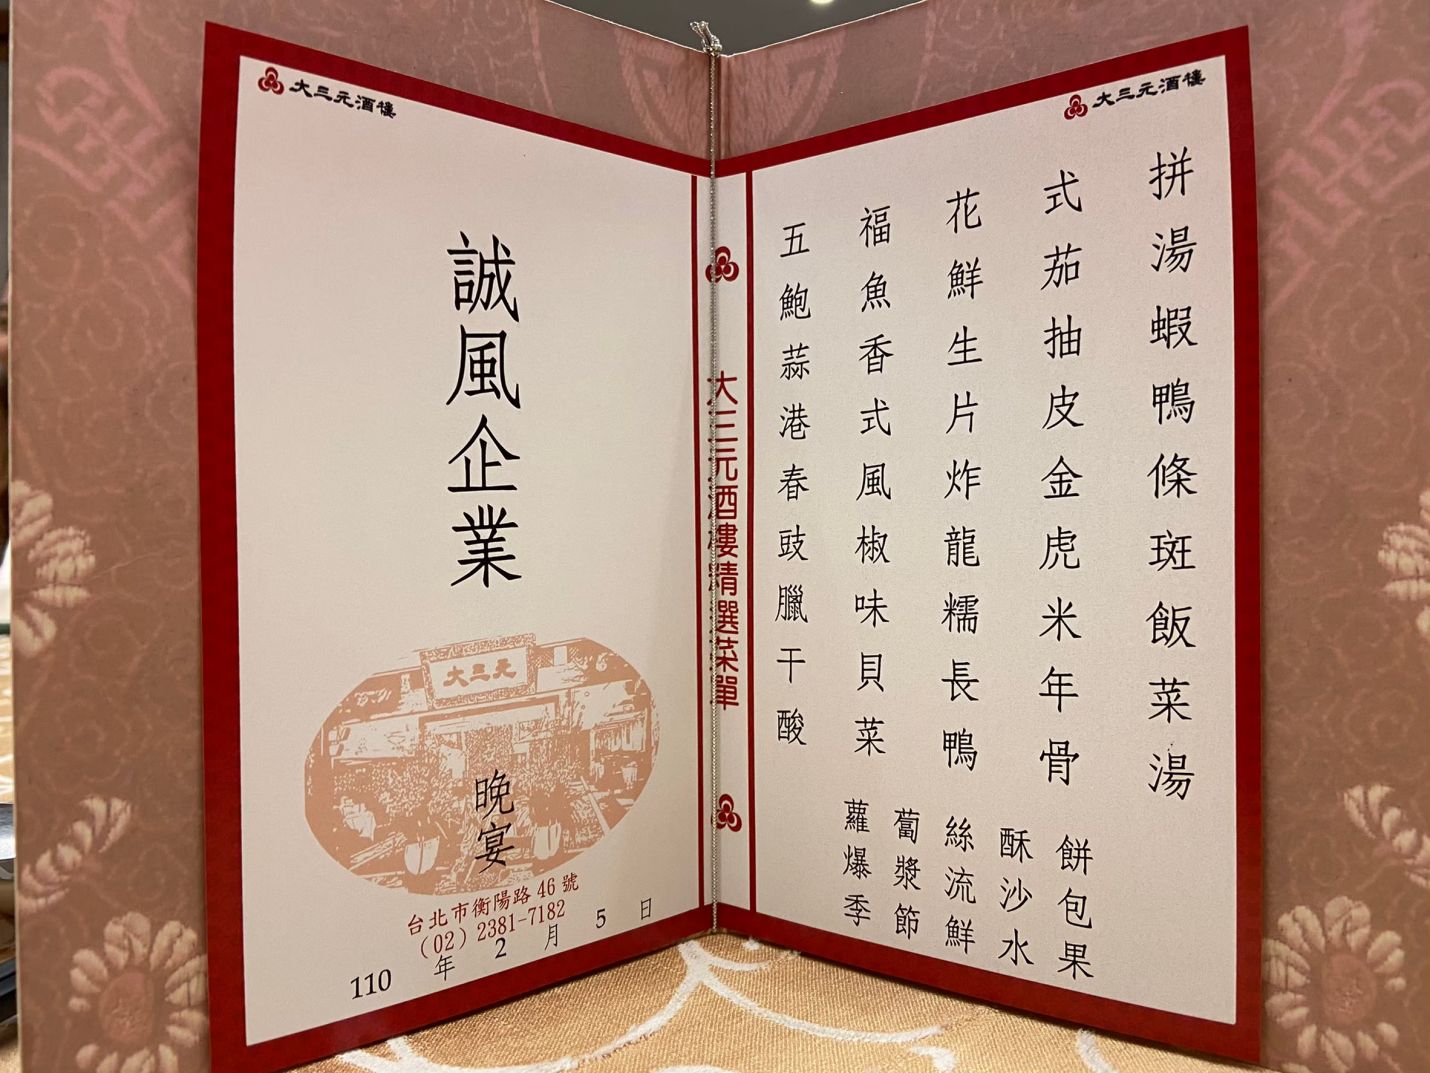 大三元酒樓
誠風企業
大三元
晚宴
台北市衡陽路46號
(02) 2381-7182
110 年 2 月 5 日
大三元酒樓精選菜單
大三元酒樓
五福花式拼
鮑魚鮮茄湯
蒜香生抽蝦
港式片皮鴨
春風炸金條
豉椒龍虎斑
臘味糯米飯
干貝長年菜
酸菜鴨骨湯
蘿蔔絲酥餅
爆漿流沙包
季節鮮水果